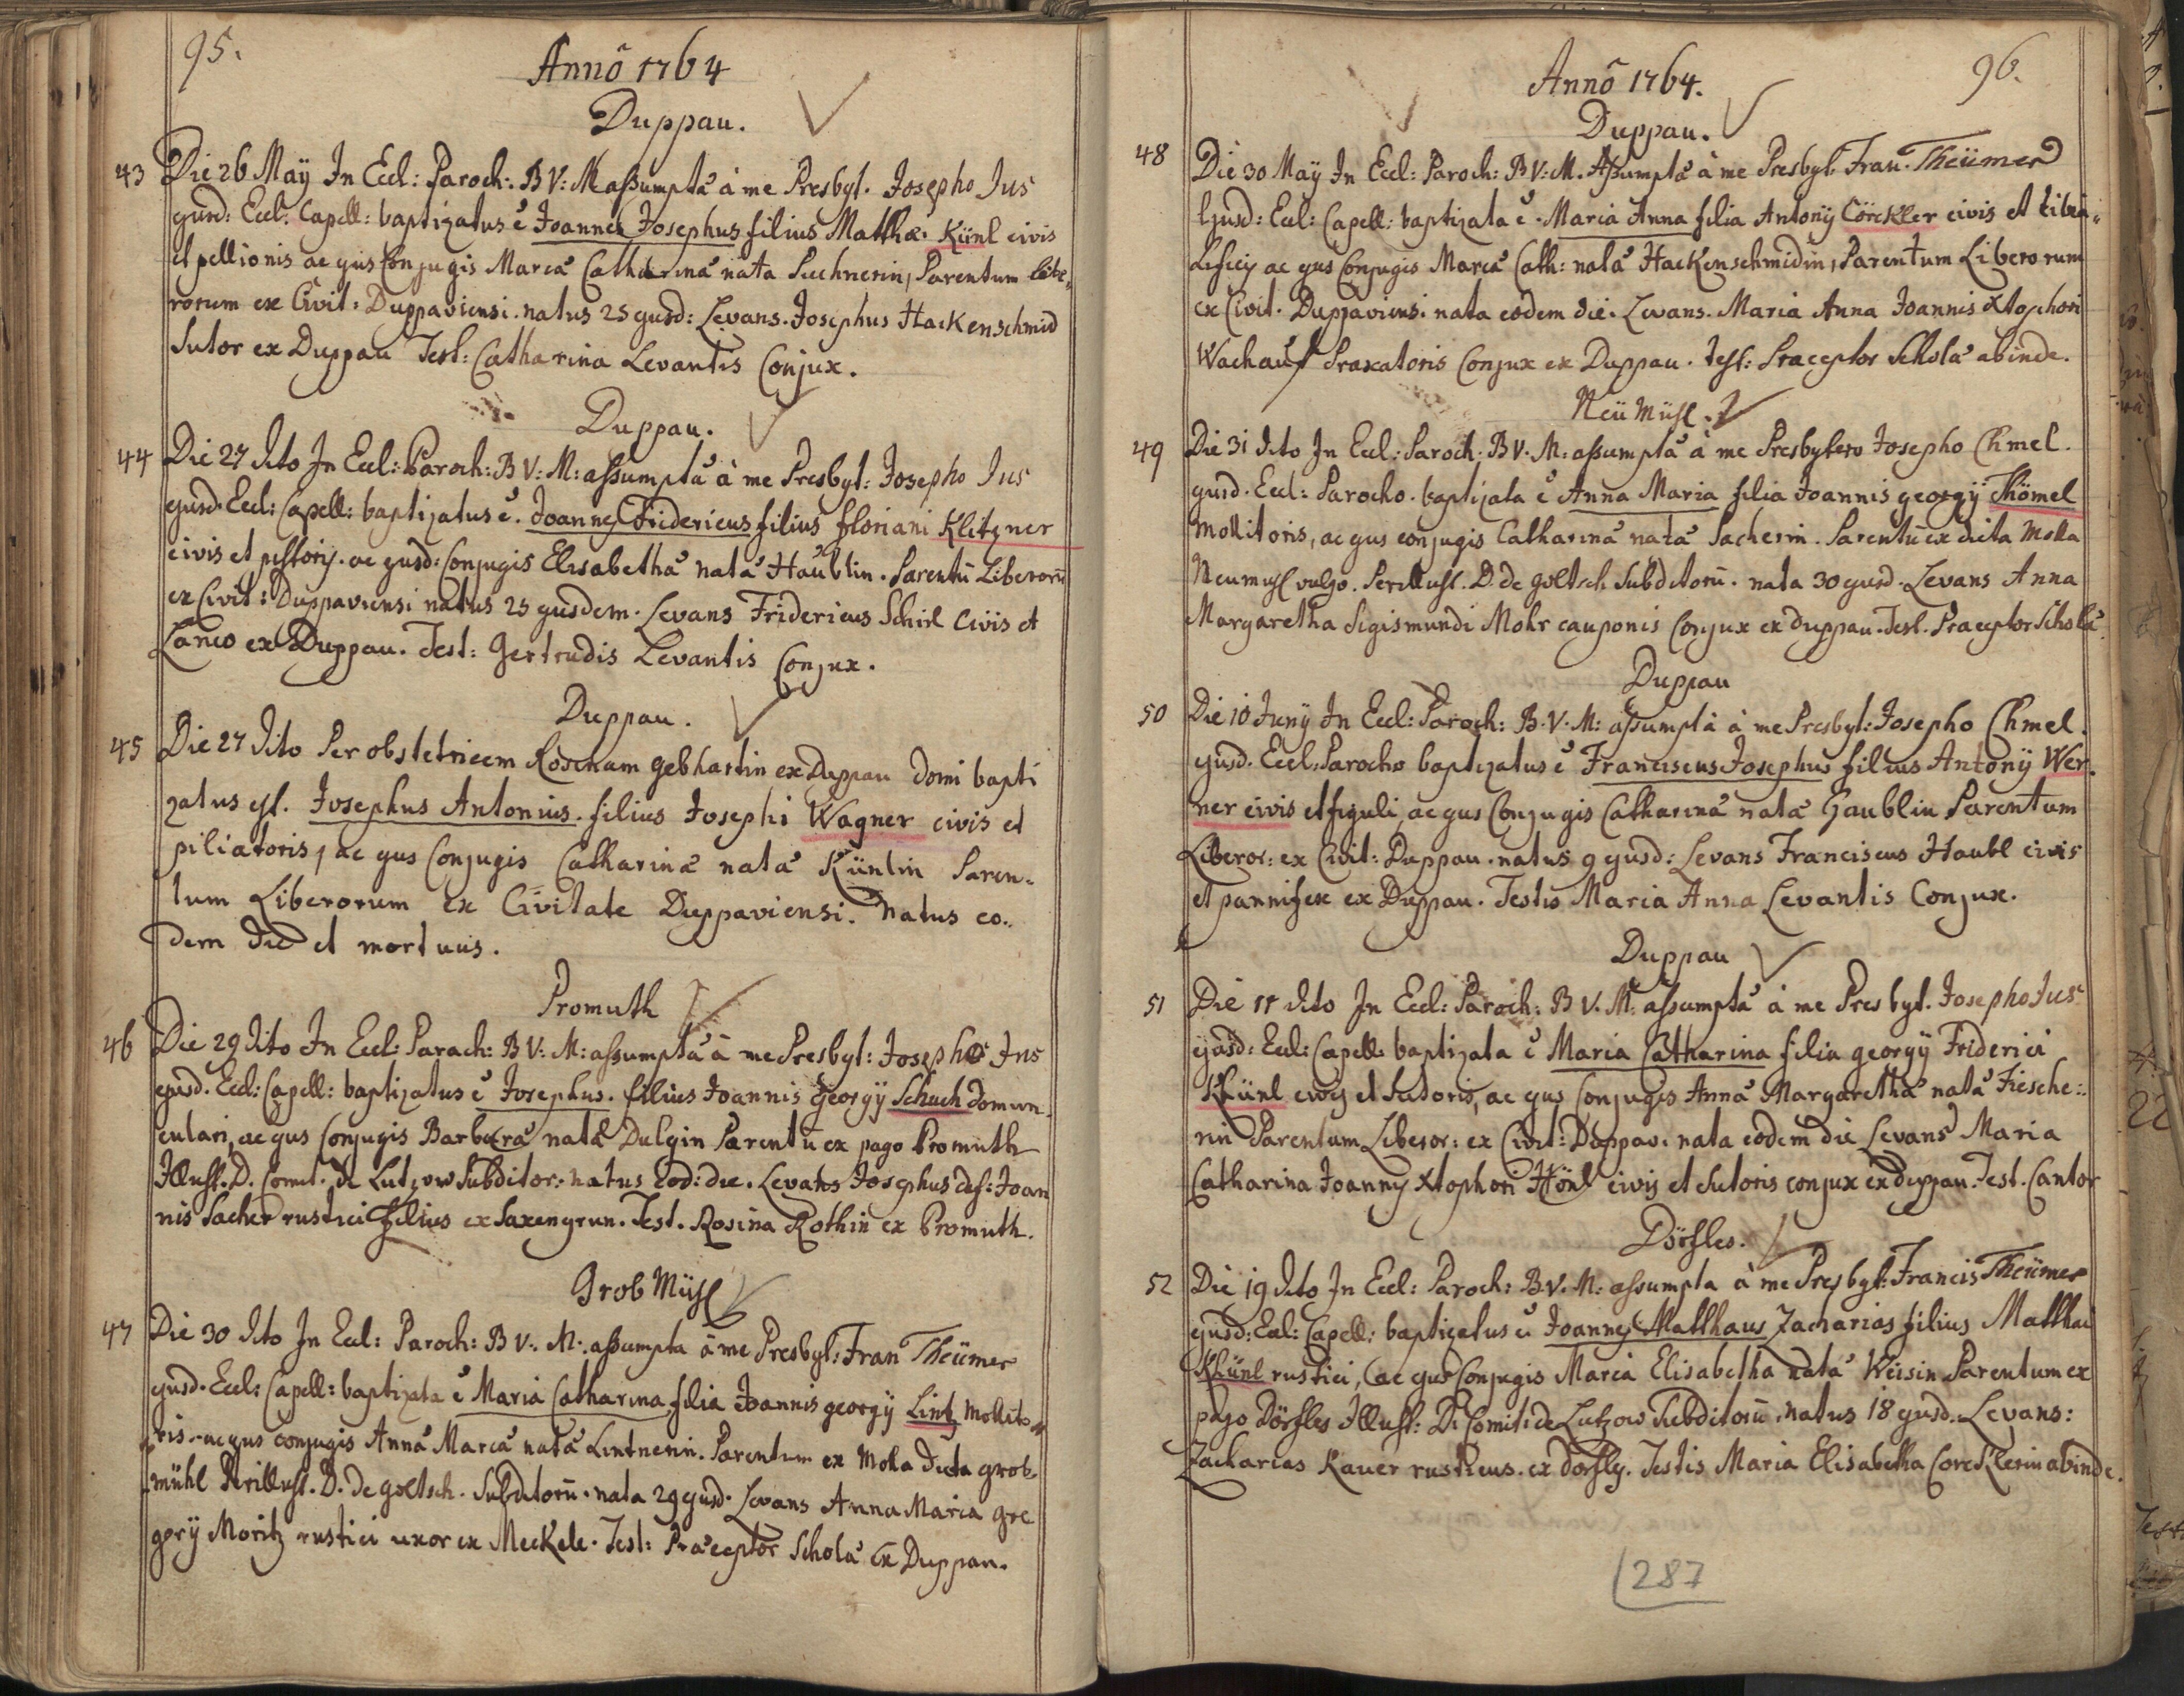 95.
Annô 1764
Duppau.
43 Die 26 Maÿ In Eccl: Paroch: B V: M assumptæ à me Presbyt. Josepho Jus
ejusd: Eccl: Capell: baptizatus ē Joannes Josephus filius Mathæ. Künl civis
et pellionis ac ejus Conjugis Mariæ Catharinæ nata Puchnerin, Parentum libe„
rorum ex Civit: Duppaviensi. natus 25 ejusd: Levans. Josephus Hackenschmid
Sutor ex Duppau Test: Catharina Levantis Conjux.
Duppau.
44 Die 27 dito In Eccl: Paroch: B V: M: assumptæ à me Presbyt: Josepho Jus
ejusd. Eccl: Capell: baptizatus ē. Joannes Fridericus filius floriani Klitzner
civis et pistoris. ac ejusd: Conjugis Elisabethæ natæ Haüblin. Parentū Liberorū
ex Civit: Duppaviensi natus 25 ejusdem. Levans Fridericus Schirl Civis et
Lanio ex Duppau. Test: Gertrudis Levantis Conjux.
Duppau.
45 Die 27 dito Per obstetricem Rosinam gebhartin ex Duppau domi bapti
zatus est. Josephus Antonius. filius Josephi Wagner civis et
piliatoris, ac ejus Conjugis Catharinæ natæ Künlin Paren„
tum Liberorum ex Civitate Duppaviensi. natus eo„
dem die et mortuus.
Promuth
46 Die 29 dito In Eccl: Paroch: B V: M: assumptæ à me Presbyt: Josepho Jus
ejusd. Eccl: Capell: baptizatus ē Josephus. filius Joannis Georgÿ Schuch domun„
culari, ac ejus Conjugis Barbaræ natæ Dulgin Parentū ex pago Promuth
Illust. D. Comit. de Lutzow Subditor: natus Eod: die. Levans Josephus def: Joan
nis Sacher rustici filius ex Saxengrun. Test. Rosina Rothin ex Promuth.
Grob Müsl
47 Die 30 dito In Eccl: Paroch: B V. M: assumpta à me Presbyt: Fran Theümer
ejusd. Eccl: Capell: baptizata ē Maria Catharina filia Joannis georgÿ Lintz Mollito„
ris ac ejus conjugis Annæ Mariæ natæ Lintnerin. Parentum ex Mola dicta grob„
mühl Perillust. D. De goltsch. Subditorū. nata 29 ejusd. Levans Anna Maria gre
gorÿ Moritz rustici uxor ex Meckele. Test: Præceptor Scholæ ex Duppau.
96.
Annô 1764.
Duppau.
48 Die 30 Maÿ In Eccl: Paroch: B V: M. Assumptæ à me Presbyt. Fran. Theümer
Ejusd: Eccl: Capell: baptizata ē. Maria Anna filia Antonÿ Cörckler civis et tibia„
lificis ac ejus Conjugis Mariæ Cath: natæ Hackenschmidin, Parentum Liberorum
ex Civit. Duppaviensi. nata eodem die. Levans. Maria Anna Joannis Xtophori
Wachauf Praxatoris Conjux ex Duppau. Test: Præceptor Scholæ abinde.
Neü Müsl.
49 Die 31 dito In Eccl: Paroch. B V. M: assumptæ à me Presbytero Josepho Chmel.
ejusd. Eccl: Parocho. baptizata ē Anna Maria filia Joannis georgÿ Thömel
Mollitoris, ac ejus conjugis Catharinæ natæ Sacherin. Parentū ex dicta Molla
Neumysl vulgo. Perillust. D. de goltsch Subditorū. nata 30 ejusd. Levans Anna
Margaretha Sigismundi Mohr cauponis Conjux ex Duppau. Test. Præceptor Scholæ.
Duppau
50 Die 10 Junÿ In Eccl: Paroch: B. V. M: assumptæ à me Presbyt: Josepho Chmel.
ejusd. Eccl: Parocho baptizatus ē Franciscus Josephus filius Antonÿ Wer„
ner civis et figuli, ac ejus Conjugis Catharinæ natæ Haublin Parentum
Liberor: ex Civit: Duppau. natus 9 ejusd: Levans Franciscus Haubl civis
et pannifex ex Duppau. Testis Maria Anna Levantis Conjux.
Duppau
51 Die 11 dito In Eccl: Paroch: B V. M: assumptæ à me Presbyt. Josepho Jus
ejusd: Eccl: Capell: baptizata ē Maria Catharina filia georgÿ Friderici
Khünl civis et Sutoris, ac ejus Conjugis Annæ Margarethæ natæ Fiesche„
rin Parentum Liberor: ex Civit: Duppav: nata eodem die Levans Maria
Catharina Joannis Xtophori Hönl civis et Sutoris conjux ex duppau. Test. Cantor
Dörfles.
52 Die 19 dito In Eccl: Paroch: B. V. M: assumpta à me Presbyt: Francis Theümer
ejusd: Eccl: Capell: baptizatus ē Joannes Matthæus Zacharias filius Matthæi
Khünl rustici, ac ejus Conjugis Mariæ Elisabethæ natæ Weisin Parentum ex
pago Dörfles Illust: D: Comit: de Lutzow Subditorū. natus 18 ejusd. Levans:
Zacharias Kauer rusticus. ex dörfles. Testis Maria Elisabetha Corcklerin abinde.
287